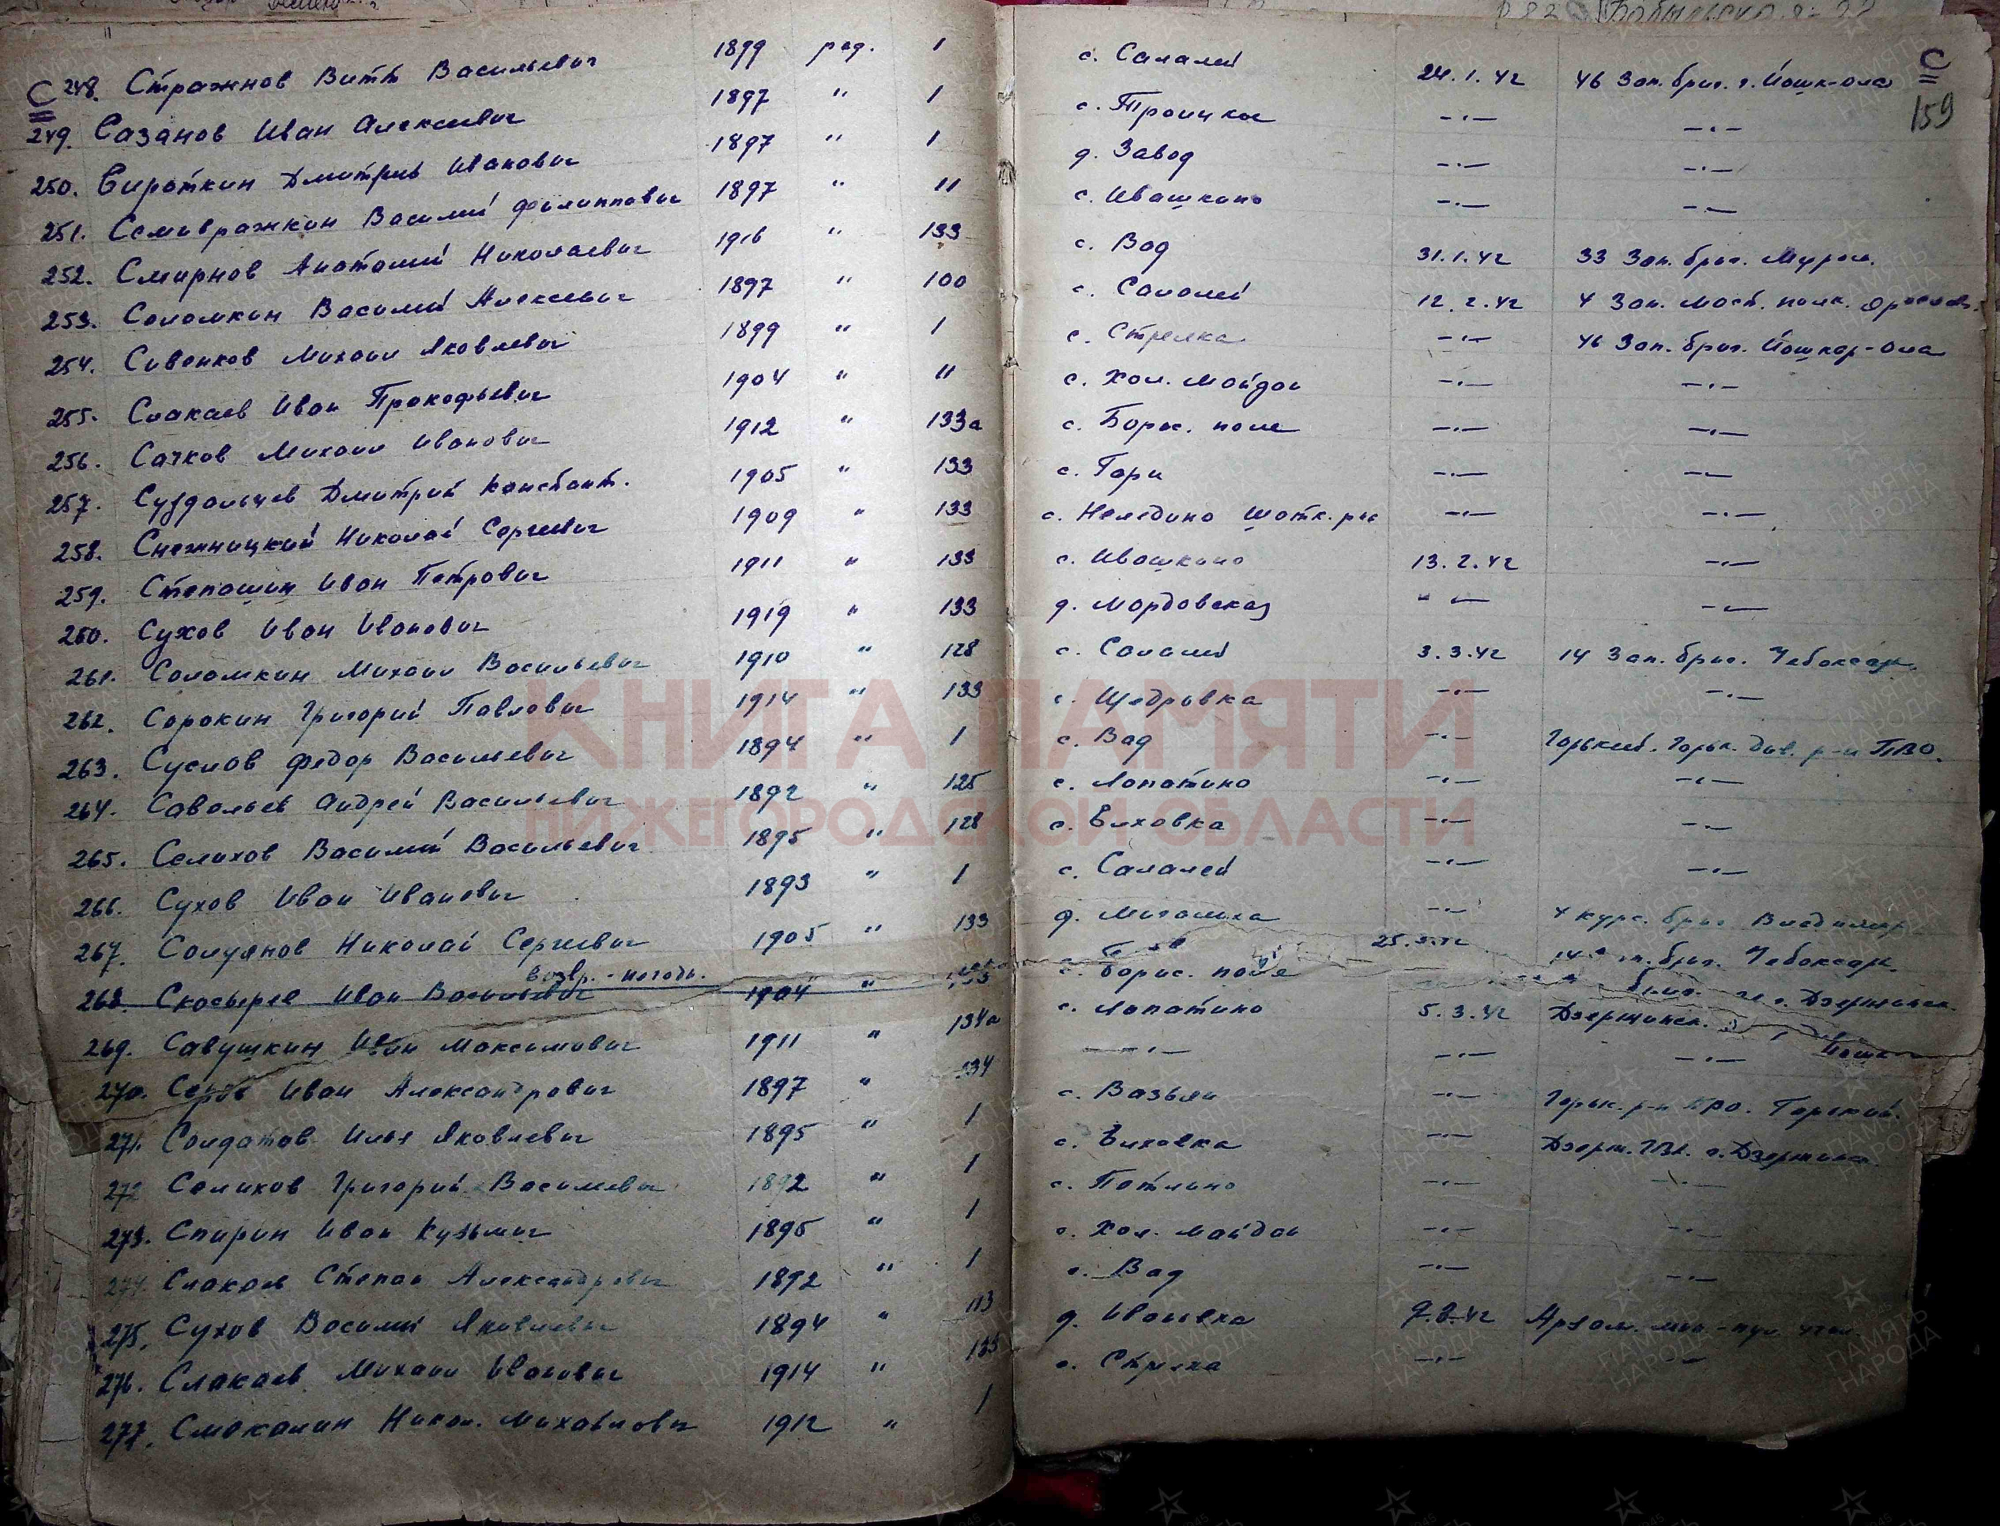 С 248. Стражнов Витт Васильевич 1899 ряд. 1 с. Салалей 24.1.42 46 Зап. бриг. г. Йошк-ола С
249. Сазанов Иван Алексеевич 1897 " 1 с. Троицкое —·— —·— 159
250. Сироткин Дмитрий Иванович 1897 " 1 д. Завод —·— —·—
251. Семавражкин Василий Филиппович 1897 " 11 с. Ивашкино —·— —·—
252. Смирнов Анатолий Николаевич 1916 " 133 с. Вад 31.1.42 33 Зап. бриг. Муром.
253. Соломкин Василий Алексеевич 1897 " 100 с. Салалей 12.2.42 4 Зап. мост. полк.
254. Сивенков Михаил Яковлевич 1899 " 1 с. Стрелка —·— 46 Зап. бриг. Йошкар-ола
255. Слакаев Иван Прокофьевич 1904 " 11 с. Хол. Майдан —·— —·—
256. Сачков Михаил Иванович 1912 " 133а с. Борис. поле —·— —·—
257. Суздальцев Дмитрий Констант. 1905 " 133 с. Гари —·— —·—
258. Снежницкий Николай Сергеевич 1909 " 133 с. Неледино Шатк. р-н —·— —·—
259. Степашин Иван Петрович 1911 " 133 с. Ивашкино 13.2.42 —·—
260. Сухов Иван Иванович 1919 " 133 д. Мордовская " — —·—
261. Соломкин Михаил Васильевич 1910 " 128 с. Салалей 3.3.42 14 Зап. бриг. Чебоксар.
262. Сорокин Григорий Павлович 1914 " 133 с. Щедровка —·— —·—
263. Суслов Федор Васильевич 1894 " 1 с. Вад —·— Горький. Горьк. див. р-н ПВО.
264. Савельев Андрей Васильевич 1892 " 125 с. Лопатино —·— —·—
265. Селихов Василий Васильевич 1895 " 128 с. Елховка —·—
266. Сухов Иван Иванович 1893 " 1 с. Салалей —·— —·—
267. Солуянов Николай Сергеевич 1905 " 133 д. Магалиха —·— 4 курс. бриг. Владимир.
возвр. - негодн.
268. Скосырев Иван Васильевич 1904 " с. Борис. поле 14 бриг. Чебоксар.
269. Савушкин Иван Максимович 1911 " 134а с. Лопатино 5.3.42 Дзержинск.
270. Серов Иван Александрович 1897 " 134 —·— —·— —·—
271. Солдатов Илья Яковлевич 1895 " 1 с. Вазьян —·— Горьк. р-н ПВО. Горький.
272 Селихов Григорий Васильевич 1892 " 1 с. Елховка —·— Дзерж. г. Дзержинск.
273. Спирин Иван Кузьмич 1895 " 1 с. Петлино —·— —·—
274. Слакаев Степан Александрович 1892 " 1 с. Хол. Майдан —·— —·—
275. Сухов Василий Яковлевич 1894 " 113 с. Вад —·— —·—
276. Слакаев Михаил Иванович 1914 " 133 д. Арзам.
277. Смекалин Никол. Михайлович 1912 " 1 с. Стрелка —·— —·—
КНИГА ПАМЯТИ
НИЖЕГОРОДСКОЙ ОБЛАСТИ
ПАМЯТЬ НАРОДА